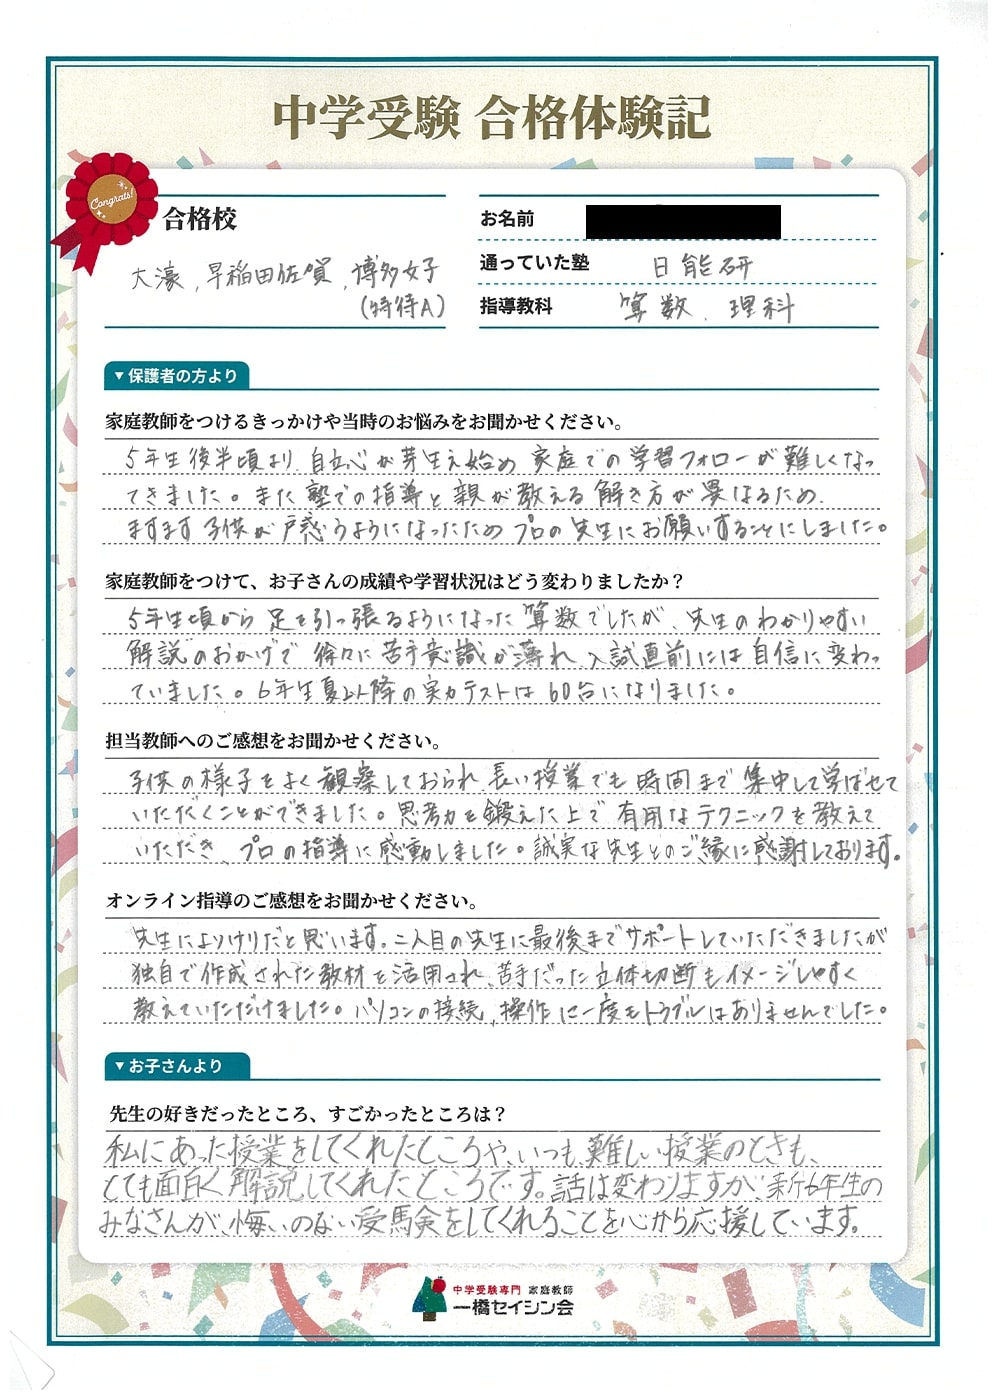 中学受験 合格体験記
Congrats!
合格校
大濠、早稲田佐賀、博多女子
(特待A)
お名前
通っていた塾 日能研
指導教科 算数、理科
▼保護者の方より
家庭教師をつけるきっかけや当時のお悩みをお聞かせください。
5年生後半頃より、自立心が芽生え始め 家庭での学習フォローが難しくなっ
てきました。また塾での指導と親が教える解き方が異なるため、
ますます子供が戸惑うようになったためプロの先生にお願いすることにしました。
家庭教師をつけて、お子さんの成績や学習状況はどう変わりましたか？
5年生頃から足を引っ張るようになった算数でしたが、先生のわかりやすい
解説のおかげで徐々に苦手意識が薄れ、入試直前には自信に変わっ
ていました。6年生夏以降の実力テストは60台になりました。
担当教師へのご感想をお聞かせください。
子供の様子をよく観察しておられ、長い授業でも時間まで集中して学ばせて
いただくことができました。思考力を鍛えた上で有用なテクニックを教えて
いただき、プロの指導に感動しました。誠実な先生とのご縁に感謝しております。
オンライン指導のご感想をお聞かせください。
先生によりけりだと思います。二人目の先生に最後までサポートしていただきましたが
独自で作成された教材を活用され、苦手だった立体切断もイメージしやすく
教えていただけました。パソコンの接続、操作に一度もトラブルはありませんでした。
▼お子さんより
先生の好きだったところ、すごかったところは？
私にあった授業をしてくれたところや、いつも難しい授業のときも、
とても面白く解説してくれたところです。話は変わりますが、新6年生の
みなさんが、悔いのない受験をしてくれることを心から応援しています。
中学受験専門 家庭教師
一橋セイシン会